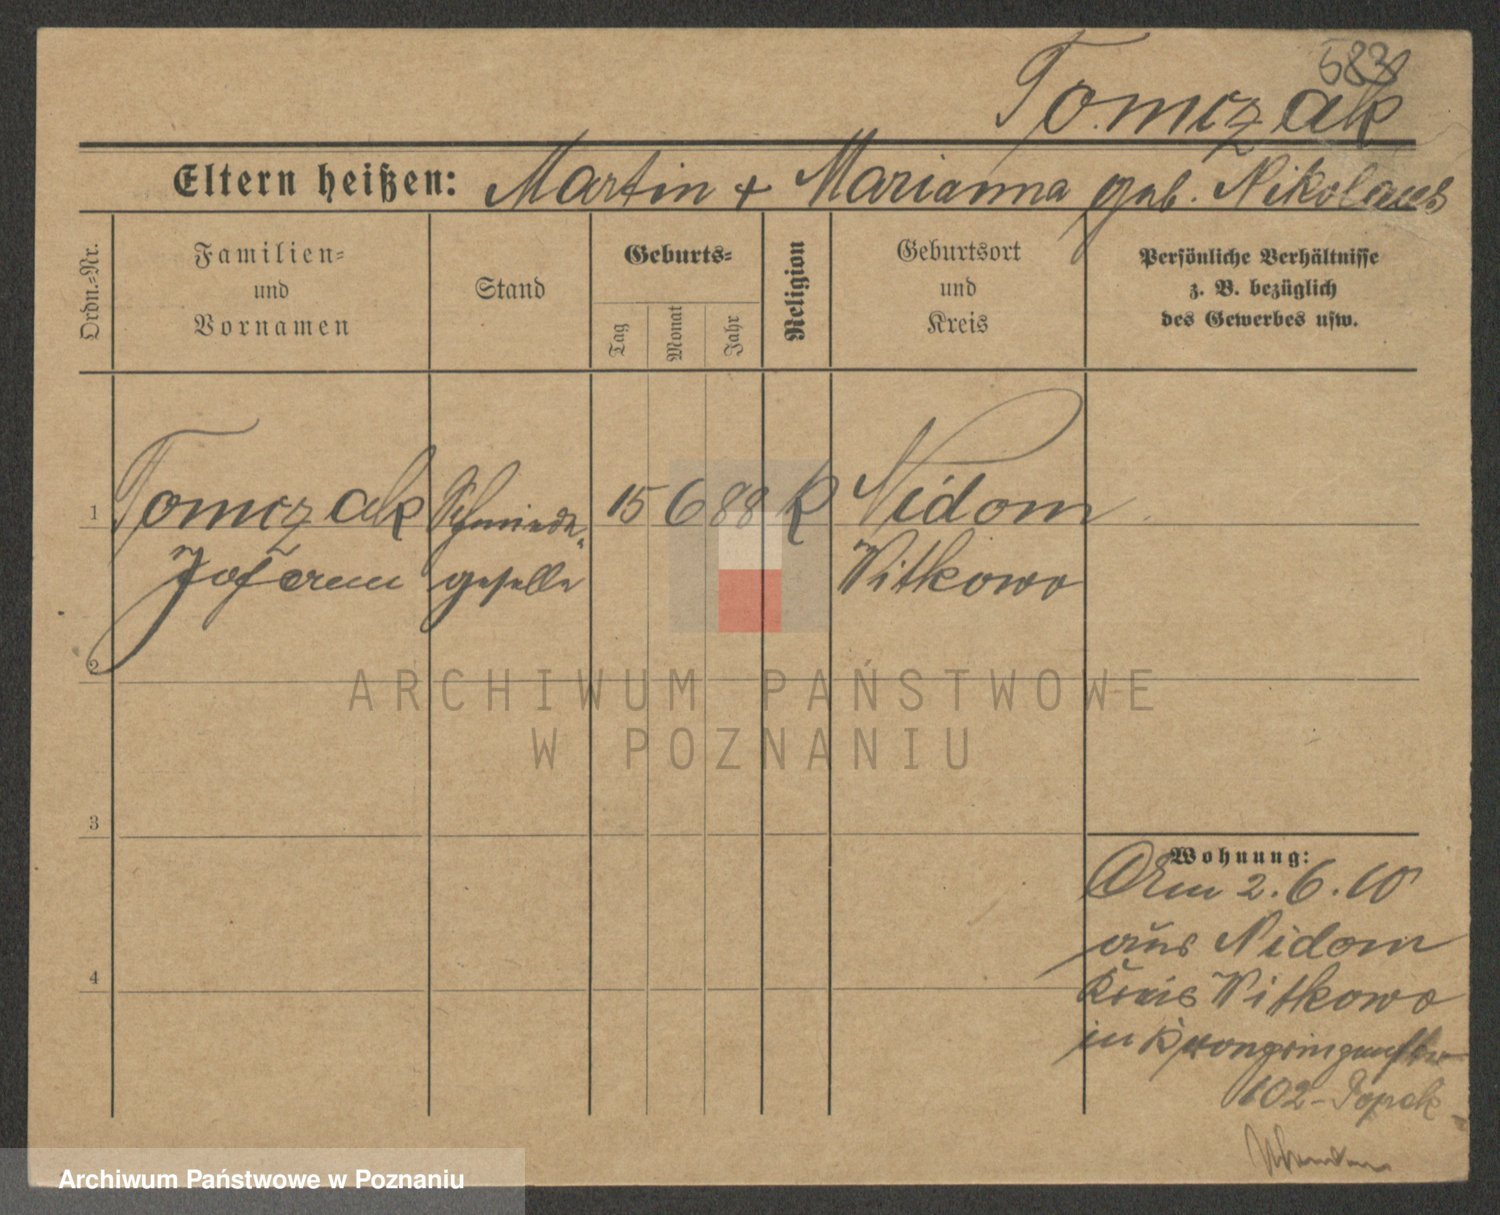 583
Tomczak
Eltern heißen: Martin + Marianna geb. Nikolaus
Ordn.=Nr.
Familien=
und
Vornamen
Stand
Geburts=
Tag
Monat
Jahr
Religion
Geburtsort
und
Kreis
Persönliche Verhältnisse
z. B. bezüglich
des Gewerbes usw.
1 Tomczak Schmiede- 15 6 88 K Nidom
Johann geselle Witkowo
2
3
4
Wohnung:
Am 2.6.10
aus Nidom
Kreis Witkowo
in Kronprinzenstr
102-
ARCHIWUM PAŃSTWOWE
W POZNANIU
Archiwum Państwowe w Poznaniu